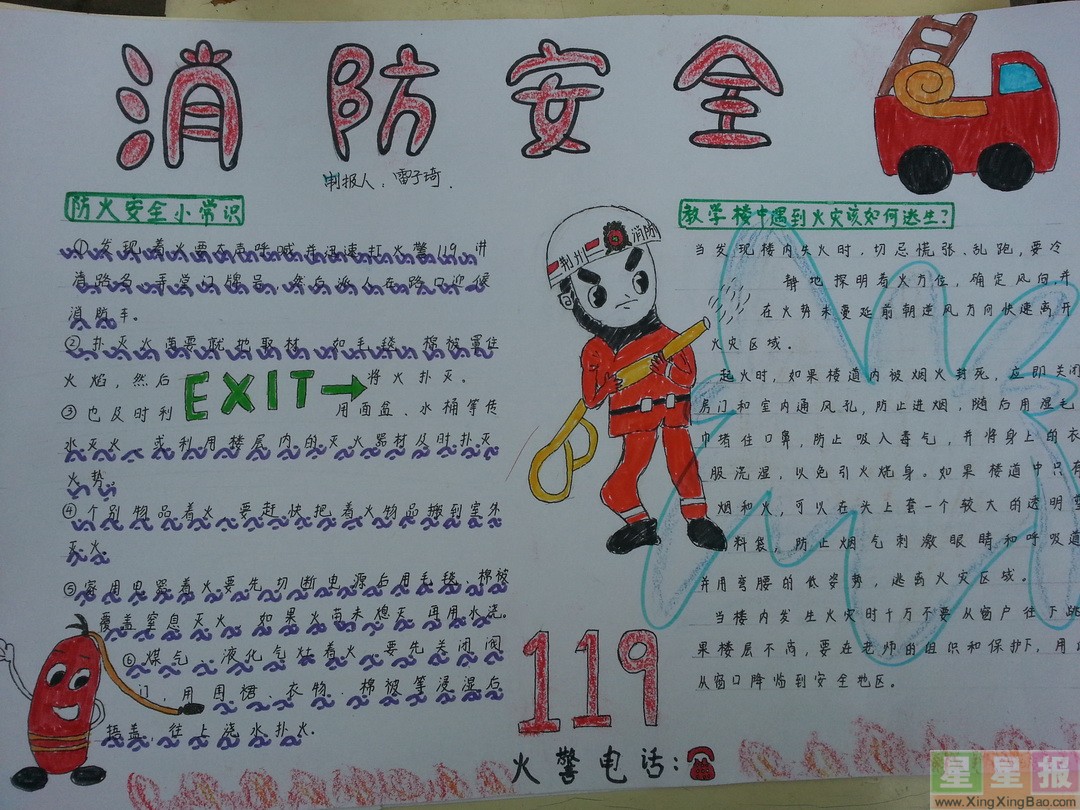 消防安全
制报人：雷子琦.
防火安全小常识
①发现着火要大声呼喊并迅速打火警119,讲
消路名、手常门牌号,然后派人在路口迎候
消防车。
②扑灭火苗要就地取材,如毛毯、棉被罩住
火焰,然后 EXIT 将火扑灭。
③也及时利 用面盆、水桶等传
水灭火,或利用楼层内的灭火器材及时扑灭
火势。
④个别物品着火,要赶快把着火物品搬到室外
灭火。
⑤家用电器着火要先切断电源后用毛毯、棉被
覆盖窒息灭火,如果火苗未熄灭,再用水浇。
⑥煤气、液化气灶着火,要先关闭阀
门,用围裙、衣物、棉被等浸湿后
捂盖,往上浇水扑火。
荆州 消防
119
火警电话:
教学楼中遇到火灾该如何逃生?
当发现楼内失火时,切忌慌张、乱跑,要冷
静地探明着火方位,确定风向,并
在火势未蔓延前朝逆风方向快速离开
火灾区域。
起火时,如果楼道内被烟火封死,应即关闭
房门和室内通风孔,防止进烟,随后用湿毛
巾堵住口鼻,防止吸入毒气,并将身上的衣
服浇湿,以免引火烧身。如果楼道中只有
烟和火,可以在头上套一个较大的透明塑
料袋,防止烟气刺激眼睛和呼吸道
并用弯腰的低姿势,逃离火灾区域。
当楼内发生火灾时千万不要从窗户往下跳
果楼层不高,要在老师的组织和保护下,用
从窗口降临到安全地区。
星星报
www.XingXingBao.com